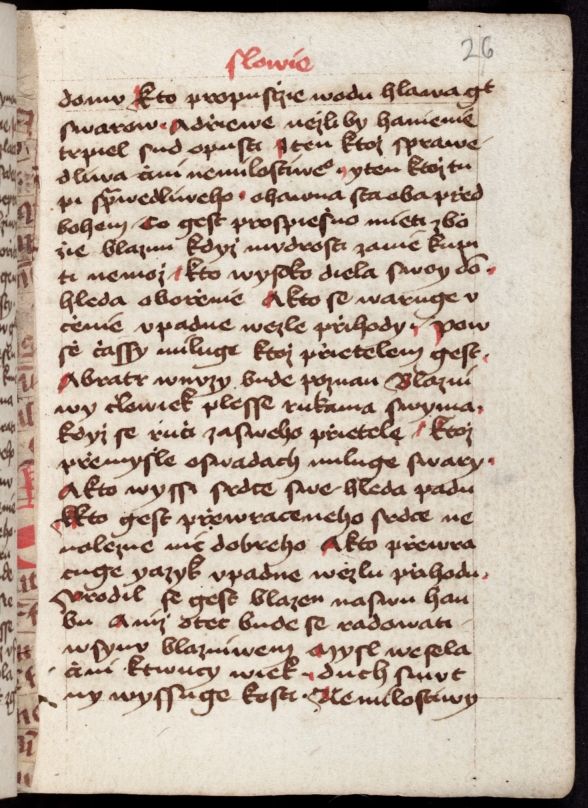 slowie
26
domu Kto propusżie wodu hlawa gt
swarow. A drziewe nezli by hanienie
trpiel sud opusti A ten ktoz sprawe
dliwa cżini nemilostiweº. y ten ktoz tu
pi sp̄wedliweho. ohawna sta oba przed
bohem Co gest prospiesno mieti zbo
zie blaznu kdyz mudrosti zanie kupi
ti nemoz Kto wysoko diela swoy dō.
hleda oborzenie A kto se waruge v
cżenie vpadne wezle przihody. Pow
se cżassy miluge ktoz przietelem gest.
A bratr wnuzy bude poznan Blazni
wy cżlowiek plesse rukama swyma.
kdyz se rucżi za sweho przietele Ktoz
przemysle o swadach miluge swary.
A kto wyssi srdce swe hleda padu
Kto gest przewraceneho srdce ne
nalezne nic dobreho A kto przewra
cuge yazyk vpadne wezlu przihodu.
Vrodil se gest blazen naswu han
bu A niz otec bude se radowati
wsynu blazniwem Mysl wesela
cżini ktwuci wiek. duch smut
ny wyssuge kosti. Nemilostiwy